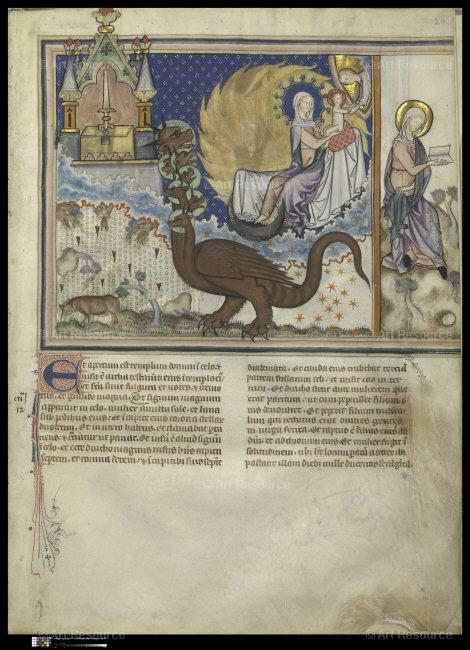 © Art Resource
Et apertum est templum domini in celo. et
visa est archa testamenti eius in templo ei
tus. et grando magna. Et signum magnum
apparuit in celo. mulier amicta sole. et luna
sub pedibus eius. et in capite eius corona stellar
duodecim. Et in utero habens. et clamabat
et cruciatur ut pariat. Et aliud signum
celo. et ecce dracho magnus rufus habens capita
septem. et cornua decem. et in capitibus suis septe
diademata. Et cauda eius trahebat tercia
partem stellarum celi. et misit eas in ter
ram. Et dracho stetit ante mulierem que
erat paritura. ut cum peperisset filium ei
us devoraret. Et peperit filium
qui recturus erat omnes gentes
in virga ferrea. Et raptus est filius eius ad
deum. et ad thronum eius. Et mulier fugit in
solitudinem. ubi locum paratum a deo ut ibi
pascant illam diebus mille ducentis sexaginta.
© Art Resource